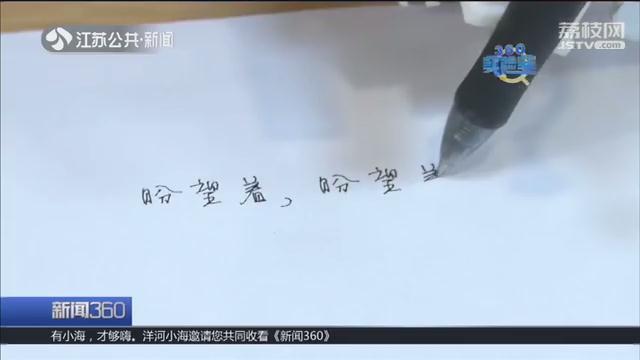 江苏公共·新闻
荔枝网
JSTV.com
360
实验室
盼望着，盼望
新闻360
有小海，才够嗨。洋河小海邀请您共同收看《新闻360》